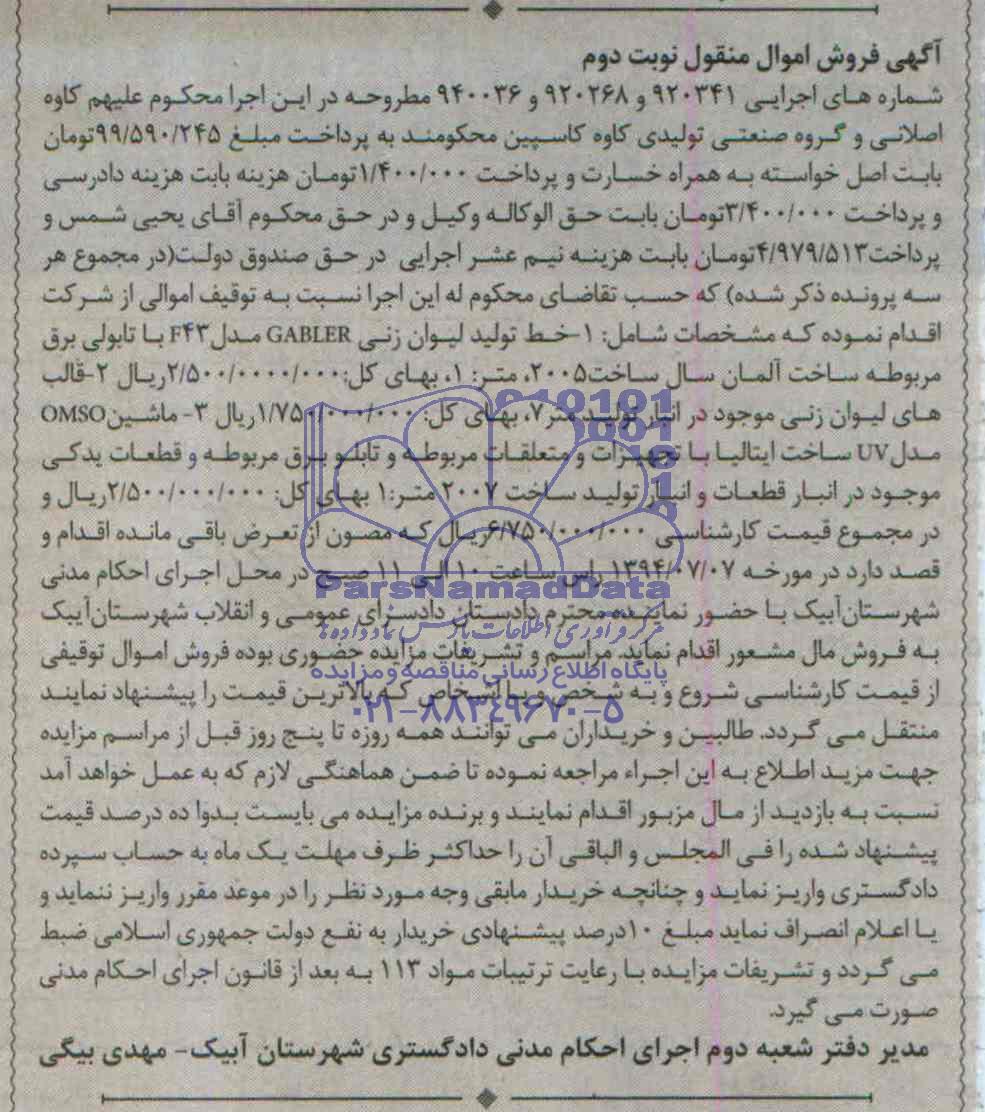 آگهی فروش اموال منقول نوبت دوم
شماره های اجرایی ۹۲۰۳۴۱ و ۹۲۰۲۶۸ و ۹۴۰۰۳۶ مطروحه در این اجرا محکوم علیهم کاوه
اصلانی و گروه صنعتی تولیدی کاوه کاسپین محکومند به پرداخت مبلغ ۹۹/۵۹۰/۲۴۵تومان
بابت اصل خواسته به همراه خسارت و پرداخت ۱/۴۰۰/۰۰۰تومان هزینه بابت هزینه دادرسی
و پرداخت ۳/۴۰۰/۰۰۰تومان بابت حق الوکاله وکیل و در حق محکوم آقای یحیی شمس و
پرداخت۴/۹۷۹/۵۱۳تومان بابت هزینه نیم عشر اجرایی در حق صندوق دولت(در مجموع هر
سه پرونده ذکر شده) که حسب تقاضای محکوم له این اجرا نسبت به توقیف اموالی از شرکت
اقدام نموده که مشخصات شامل: ۱-خط تولید لیوان زنی GABLER مدلF۴۳ با تابولی برق
مربوطه ساخت آلمان سال ساخت۲۰۰۵، متر: ۱، بهای کل:۲/۵۰۰/۰۰۰۰/۰۰۰ریال ۲-قالب
های لیوان زنی موجود در انبار تولید متر۷، بهای کل: ۱/۷۵۰/۰۰۰/۰۰۰ریال ۳- ماشینOMSO
مدلUV ساخت ایتالیا با تجهیزات و متعلقات مربوطه و تابلو برق مربوطه و قطعات یدکی
موجود در انبار قطعات و انبار تولید ساخت ۲۰۰۷ متر:۱ بهای کل: ۲/۵۰۰/۰۰۰/۰۰۰ریال و
در مجموع قیمت کارشناسی ۶/۷۵۰/۰۰۰/۰۰۰ریال که مصون از تعرض باقی مانده اقدام و
قصد دارد در مورخه ۱۳۹۴/۰۷/۰۷ راس ساعت ۱۰ الی ۱۱ صبح در محل اجرای احکام مدنی
ParsNamadData
شهرستان‌آبیک با حضور نماینده محترم دادستان دادسرای عمومی و انقلاب شهرستان‌آبیک
مرکز فرآوری اطلاعات پارس نماد داده ها
به فروش مال مشعور اقدام نماید. مراسم و تشریفات مزایده حضوری بوده فروش اموال توقیفی
پایگاه اطلاع رسانی مناقصه و مزایده
از قیمت کارشناسی شروع و به شخص و یا اشخاص که بالاترین قیمت را پیشنهاد نمایند
۰۲۱-۸۸۳۴۹۶۷۰-۵
منتقل می گردد. طالبین و خریداران می توانند همه روزه تا پنج روز قبل از مراسم مزایده
جهت مزید اطلاع به این اجراء مراجعه نموده تا ضمن هماهنگی لازم که به عمل خواهد آمد
نسبت به بازدید از مال مزبور اقدام نمایند و برنده مزایده می بایست بدوا ده درصد قیمت
پیشنهاد شده را فی المجلس و الباقی آن را حداکثر ظرف مهلت یک ماه به حساب سپرده
دادگستری واریز نماید و چنانچه خریدار مابقی وجه مورد نظر را در موعد مقرر واریز ننماید و
یا اعلام انصراف نماید مبلغ ۱۰درصد پیشنهادی خریدار به نفع دولت جمهوری اسلامی ضبط
می گردد و تشریفات مزایده با رعایت ترتیبات مواد ۱۱۳ به بعد از قانون اجرای احکام مدنی
صورت می گیرد.
مدیر دفتر شعبه دوم اجرای احکام مدنی دادگستری شهرستان آبیک- مهدی بیگی